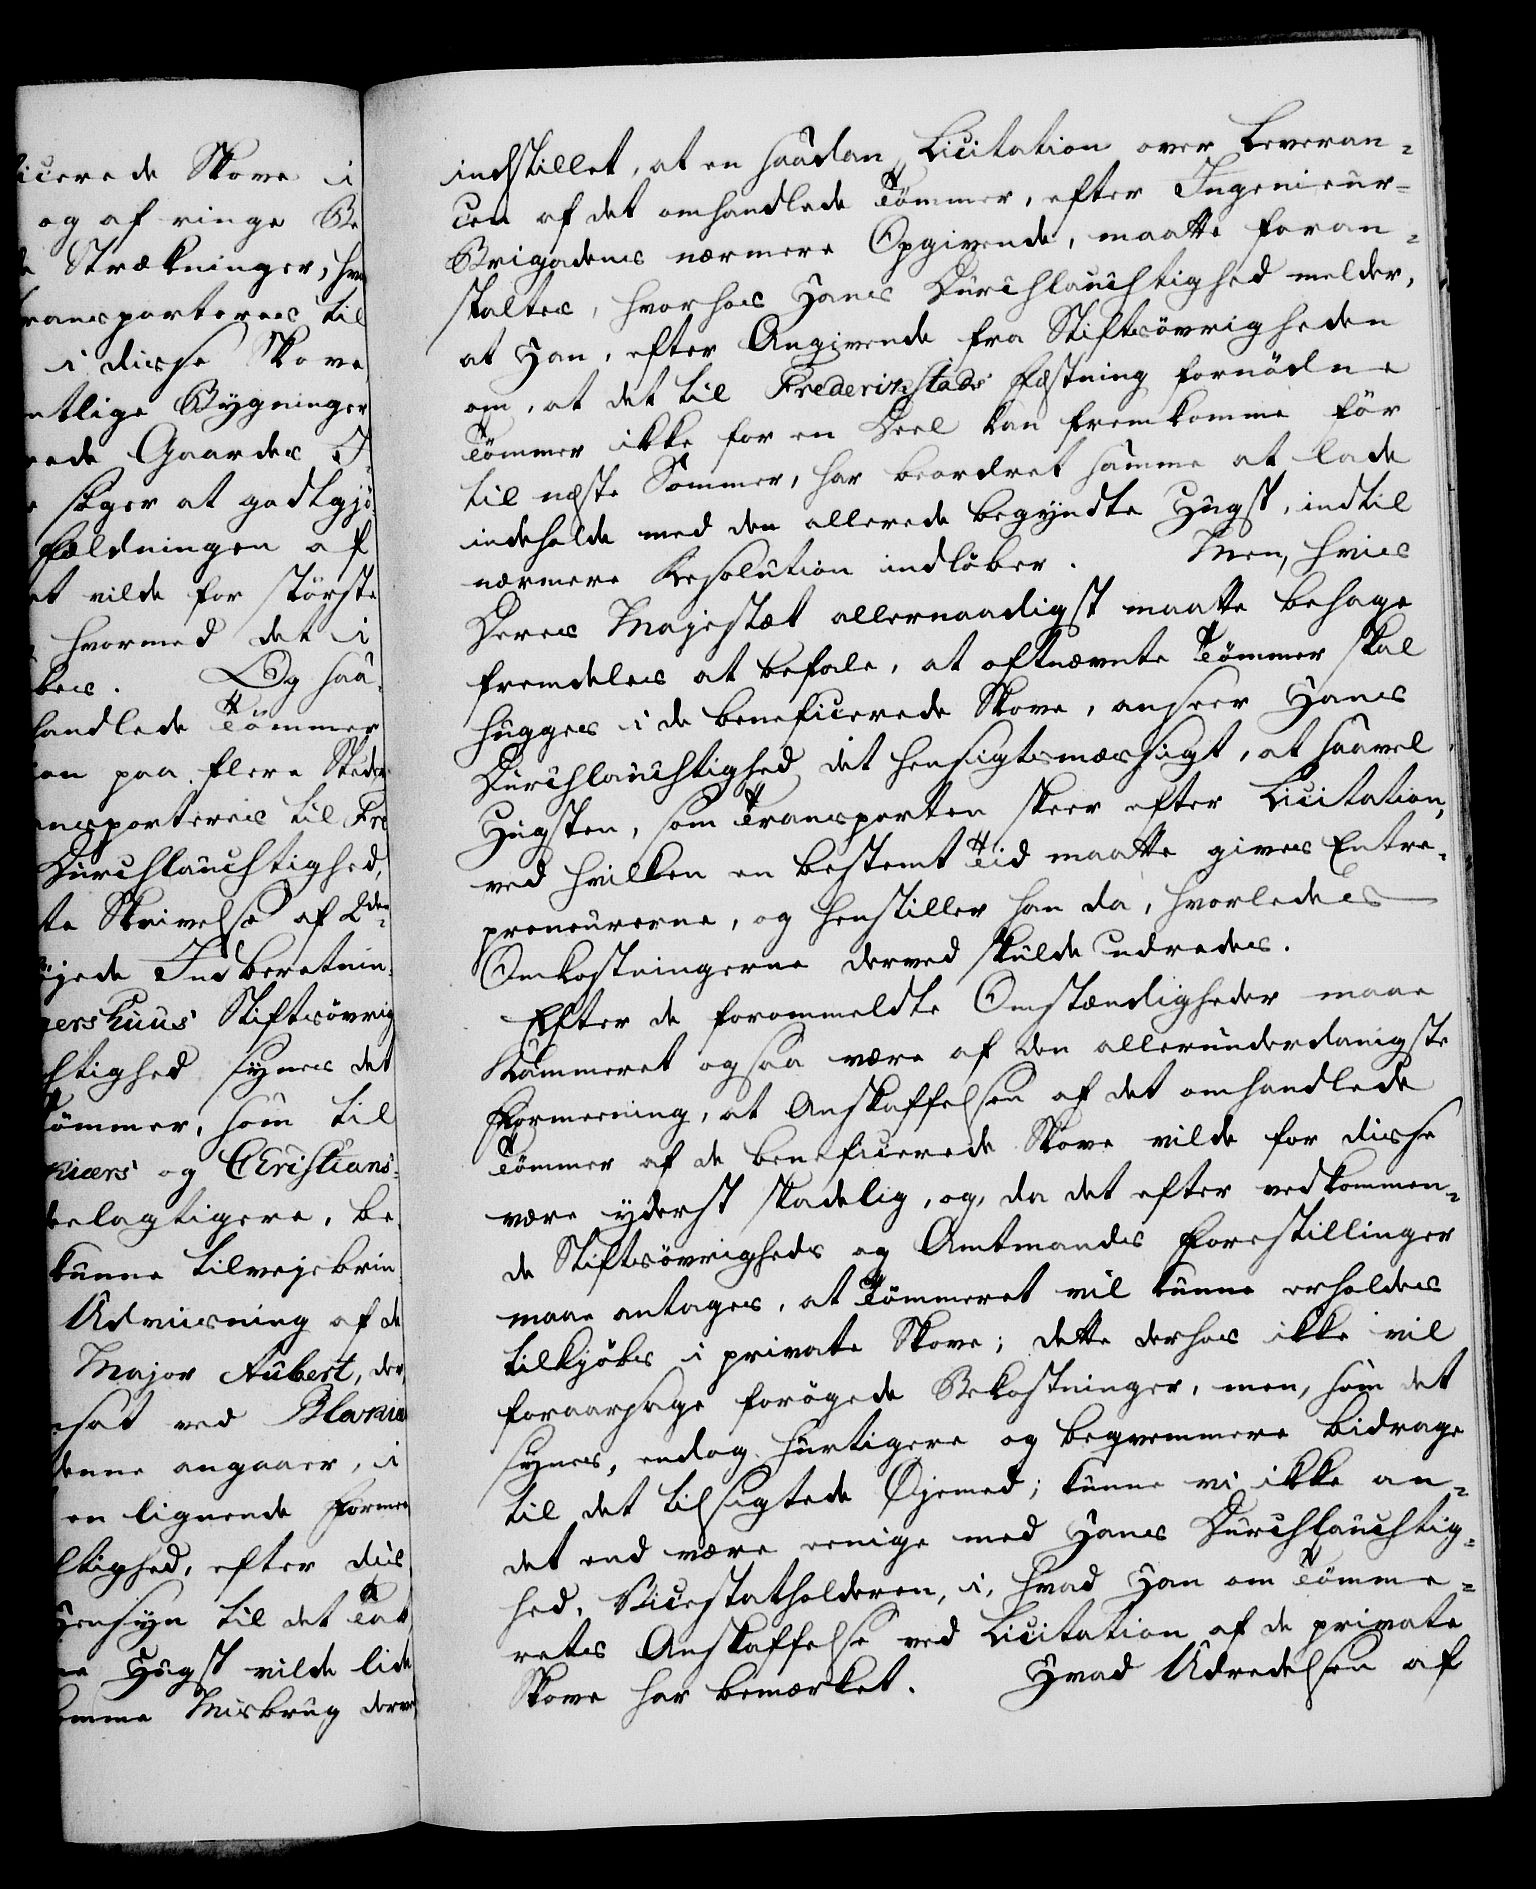 icerede Skove i
og af ringe Be
Strækninger, hvo
ransporteres til
i disse Skove
ntlige Bygninger
ede Gaardes I
søger at godtgjö
Fældningen af
et vilde for störste
hvormed det i
bes. Og saa-
handlede Tömmer
ion paa flere Steder
ansporteres til Fre
Durchlauchtighed,
te Skrivelse af 2den
öjede Indberetnin-
gershuus Stiftsövrig
htighed synes det
Tömmer, som til
kiærs og Christians-
belagtigere, be
kunne tilvejebrin
Udviisning af de
Major Aubert, der
sat ved Blakiæ
denne angaaer, i
en lignende Forme
tighed, efter dis
Hensyn til det Tab
Hugst vilde lide
komme Misbrug derv
indstillet, at en saadan Licitation over Leveran-
cen af det omhandlede Tömmer, efter Ingenieur-
Brigadens nærmere Opgivende, maatte foran-
staltes, hvorhos Hans Durchlauchtighed melder,
at Han, efter Angivende fra Stiftsövrigheden
om, at det til Frederikstads Fæstning fornödne
Tömmer ikke for en Deel kan fremkomme för
til næste Sommer, har beordret samme at lade
indeholde med den allerede begyndte Hugst, indtil
nærmere Resolution indlöber. Men, hvis
Deres Majestæt allernaadigst maatte behage
fremdeles at befale, at oftnævnte Tömmer skal
hugges i de beneficerede Skove, anseer Hans
Durchlauchtighed det hensigtsmæssigt, at saavel
Hugsten, som Transporten skeer efter Licitation,
ved hvilken en bestemt Tid maatte gives Entre-
preneurerne, og henstiller han da, hvorledes
Omkostningerne derved skulde udredes.
Efter de forommeldte Omstændigheder maae
Kammeret ogsaa være af den allerunderdanigste
Formeening, at Anskaffelsen af det omhandlede
Tömmer af de beneficerede Skove vilde for disse
være yderst skadelig, og, da det efter vedkommen-
de Stiftsövrigheds og Amtmands Forestillinger
maae antages, at Tömmeret vil kunne erholdes
tilkjöbs i private Skove; dette derhos ikke vil
foraarsage forögede Bekostninger, men, som det
synes, endog hurtigere og beqvemmere bidrage
til det tilsigtede Öjemed; kunne vi ikke an-
det end være eenige med Hans Durchlauchtig-
hed, Vicestatholderen, i, hvad Han om Tömme-
rets Anskaffelse ved Licitation af de private
Skove har bemærket. Hvad Udredelsen af